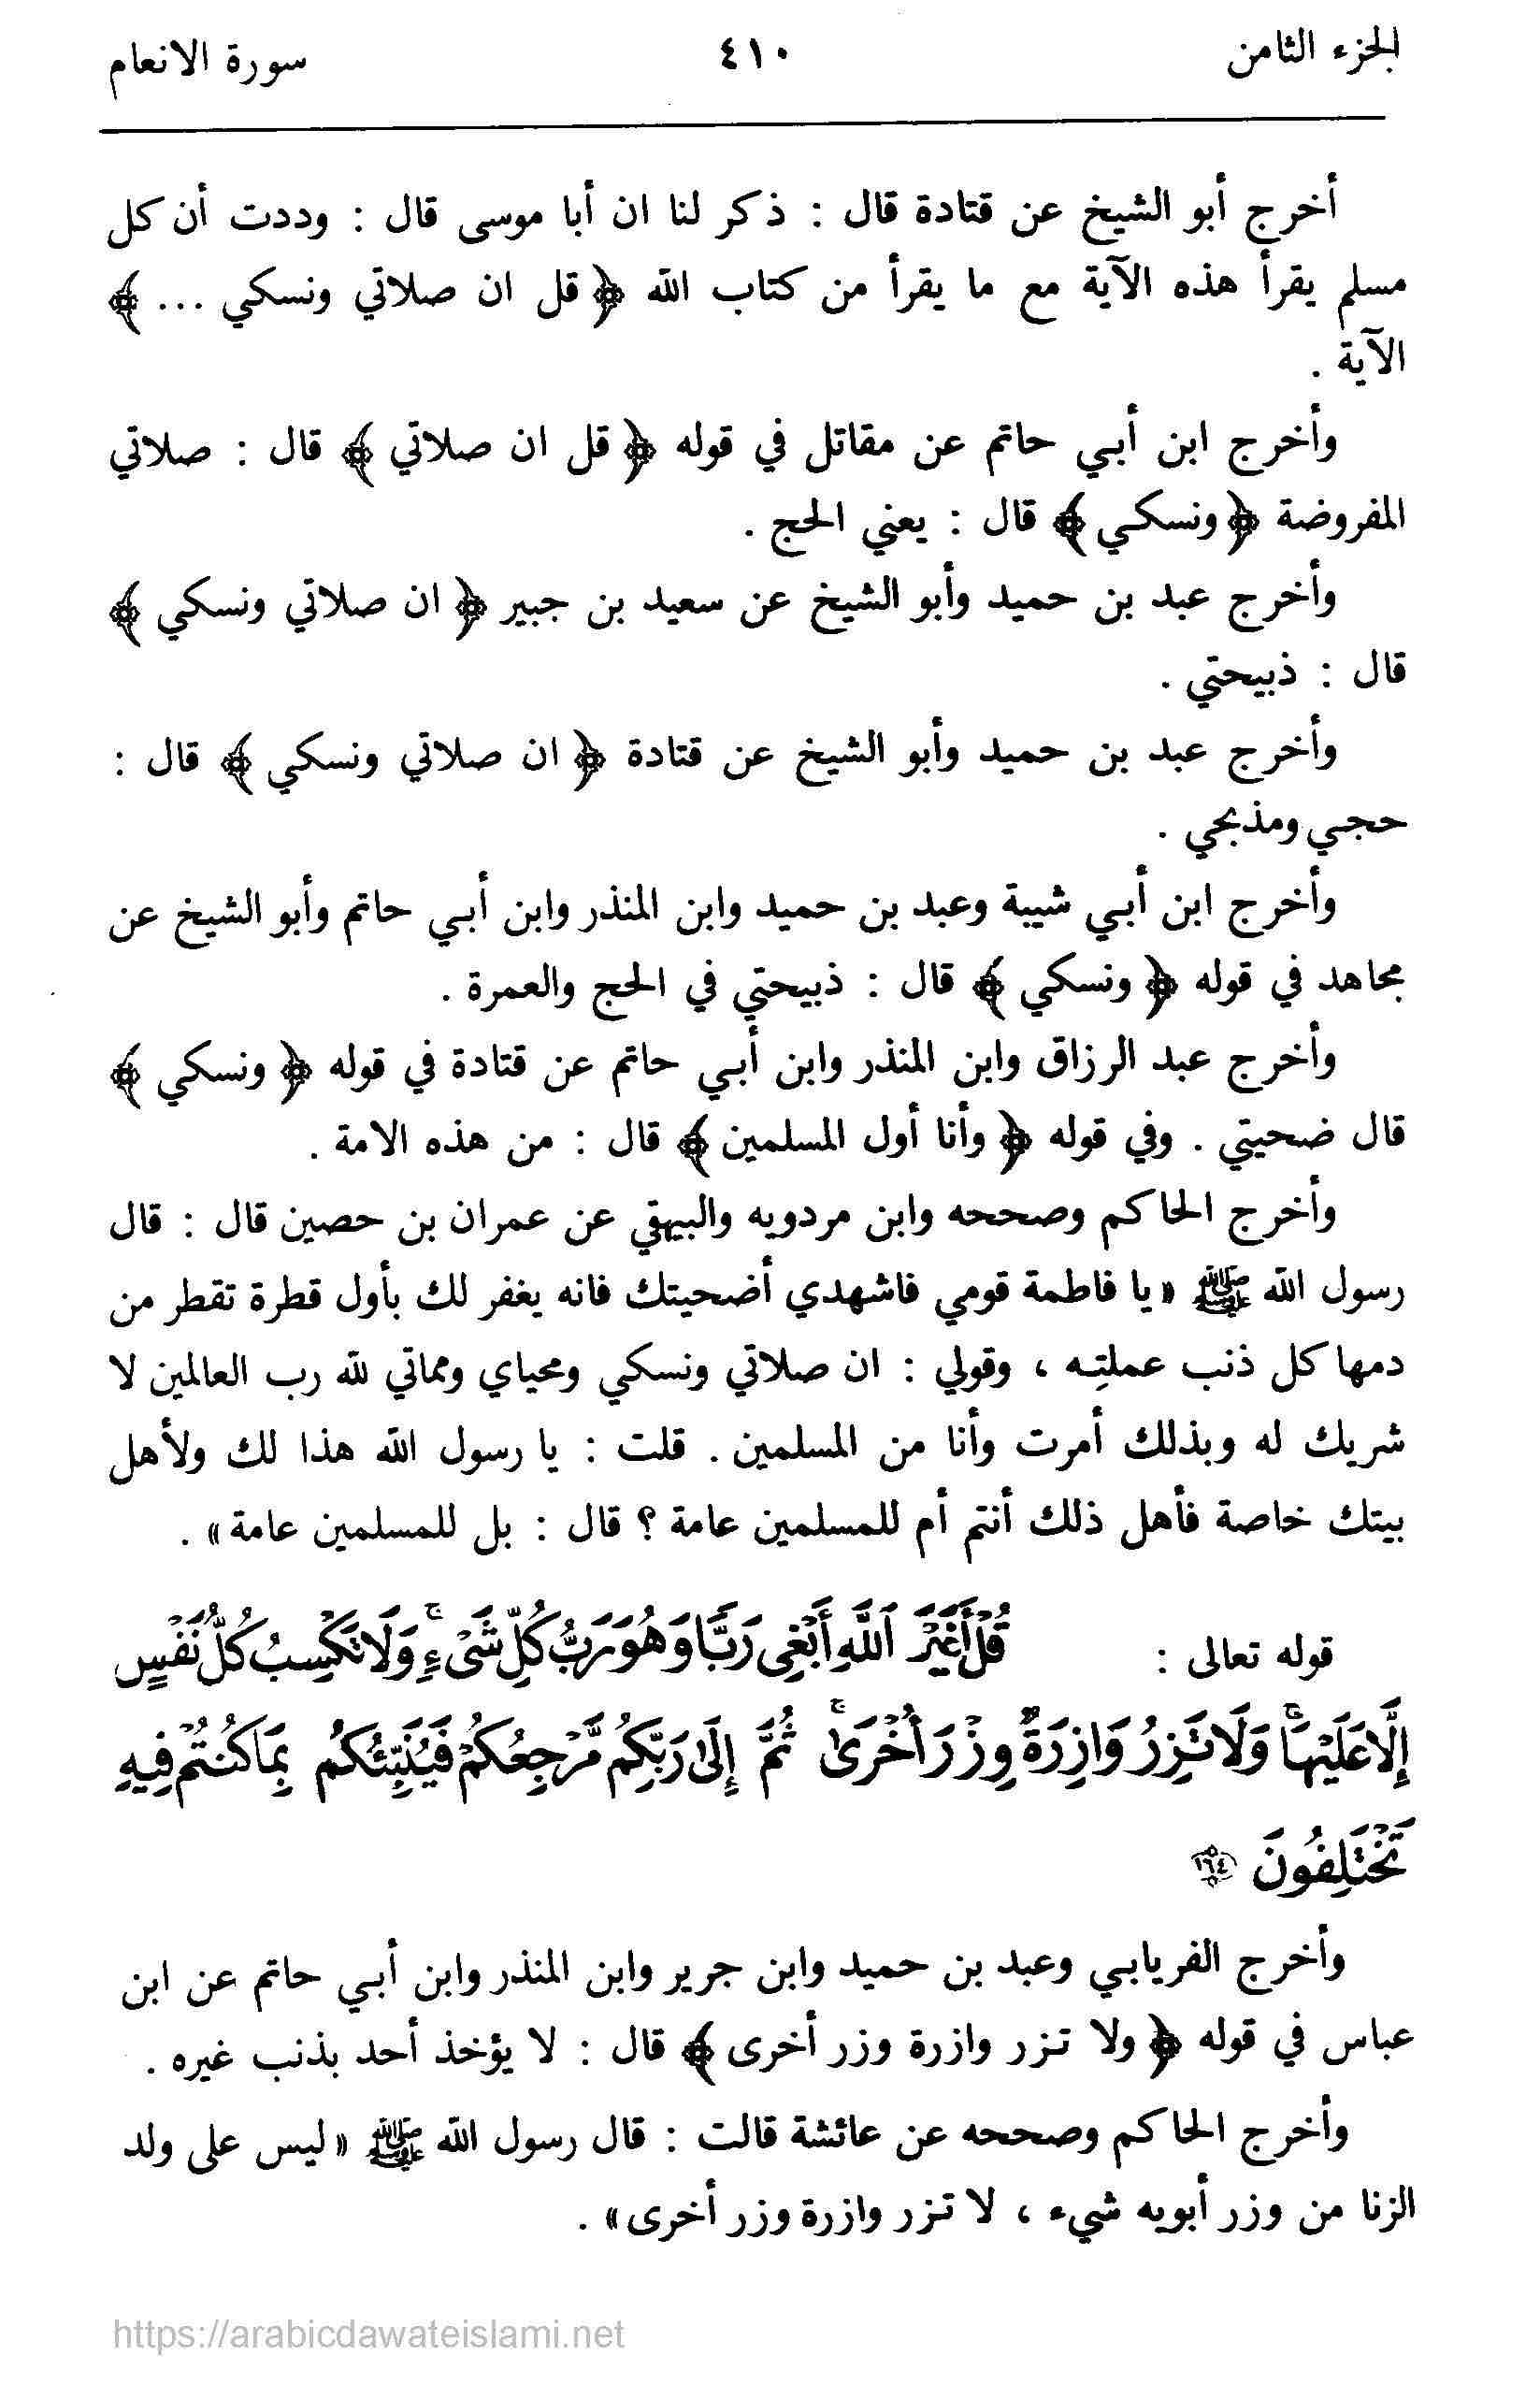 الجزء الثامن ٤١٠ سورة الانعام
أخرج أبو الشيخ عن قتادة قال : ذكر لنا ان أبا موسى قال : وددت أن كل
مسلم يقرأ هذه الآية مع ما يقرأ من كتاب الله ﴿ قل ان صلاتي ونسكي ... ﴾
الآية .
وأخرج ابن أبي حاتم عن مقاتل في قوله ﴿ قل ان صلاتي ﴾ قال : صلاتي
المفروضة ﴿ ونسكي ﴾ قال : يعني الحج .
وأخرج عبد بن حميد وأبو الشيخ عن سعيد بن جبير ﴿ ان صلاتي ونسكي ﴾
قال : ذبيحتي .
وأخرج عبد بن حميد وأبو الشيخ عن قتادة ﴿ ان صلاتي ونسكي ﴾ قال :
حجي ومذبحي .
وأخرج ابن أبي شيبة وعبد بن حميد وابن المنذر وابن أبي حاتم وأبو الشيخ عن
مجاهد في قوله ﴿ ونسكي ﴾ قال : ذبيحتي في الحج والعمرة .
وأخرج عبد الرزاق وابن المنذر وابن أبي حاتم عن قتادة في قوله ﴿ ونسكي ﴾
قال ضحيتي . وفي قوله ﴿ وأنا أول المسلمين ﴾ قال : من هذه الامة .
وأخرج الحاكم وصححه وابن مردويه والبيهقي عن عمران بن حصين قال : قال
رسول الله ﷺ « يا فاطمة قومي فاشهدي أضحيتك فانه يغفر لك بأول قطرة تقطر من
دمها كل ذنب عملتِه ، وقولي : ان صلاتي ونسكي ومحياي ومماتي لله رب العالمين لا
شريك له وبذلك أمرت وأنا من المسلمين . قلت : يا رسول الله هذا لك ولأهل
بيتك خاصة فأهل ذلك أنتم أم للمسلمين عامة ؟ قال : بل للمسلمين عامة » .
قوله تعالى : قُلْ أَغَيْرَ ٱللَّهِ أَبْغِى رَبًّا وَهُوَ رَبُّ كُلِّ شَىْءٍ ۚ وَلَا تَكْسِبُ كُلُّ نَفْسٍ
إِلَّا عَلَيْهَا ۚ وَلَا تَزِرُ وَازِرَةٌ وِزْرَ أُخْرَىٰ ۚ ثُمَّ إِلَىٰ رَبِّكُم مَّرْجِعُكُمْ فَيُنَبِّئُكُم بِمَا كُنتُمْ فِيهِ
تَخْتَلِفُونَ ١٦٤
وأخرج الفريابي وعبد بن حميد وابن جرير وابن المنذر وابن أبي حاتم عن ابن
عباس في قوله ﴿ ولا تزر وازرة وزر أخرى ﴾ قال : لا يؤخذ أحد بذنب غيره .
وأخرج الحاكم وصححه عن عائشة قالت : قال رسول الله ﷺ « ليس على ولد
الزنا من وزر أبويه شيء ، لا تزر وازرة وزر أخرى » .
https://arabicdawateislami.net